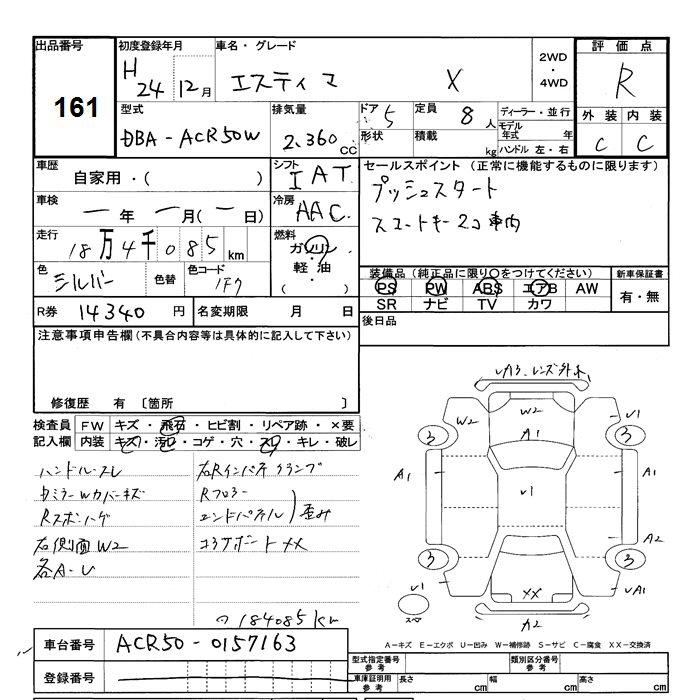 出品番号 初度登録年月 車名・グレード 評価点
161
H 24 12月 エスティマ X 2WD・4WD R
型式 排気量 ドア 5 定員 8人 ディーラー・並行 外装 内装
DBA-ACR50W 2,360CC 形状 積載 kg モデル年式 年 ハンドル 左・右 C C
車歴 自家用・( ) シフト IAT セールスポイント (正常に機能するものに限ります)
車検 ー年 ー月(ー日) 冷房 AAC プッシュスタート
スマートキー2コ 車内
走行 18万4千085km 燃料 ガソリン・軽油・( )
色 シルバー 色替 色コード 1F7 装備品(純正品に限り○をつけてください) 新車保証書
PS PW ABS エアB AW 有・無
SR ナビ TV カワ
R券 14340円 名変期限 月 日 後日品
注意事項申告欄(不具合内容等は具体的に記入して下さい)
修復歴 有 〔箇所 〕
検査員 FW キズ・飛石・ヒビ割・リペア跡・×要
記入欄 内装 キズ・汚レ・コゲ・穴・スレ・キレ・破レ
ハンドルスレ 右Rインパネクランプ
DミラーWカバーキズ Rフロアー
Rスポハゲ エンドパネル 歪み
右側面W2 コアサポートXX
各A-U
184085km
W2 W2 A1 U1
3 3
A1 U1 A1
A2
3 3
U1 XX UA1
スペア A2
A-キズ E-エクボ U-凹み W-補修跡 S-サビ C-腐食 XX-交換済
車台番号 ACR50-0157163
型式指定番号 参考 類別区分番号 参考
登録番号
車庫証明用 参考 長さ cm 幅 cm 高さ cm